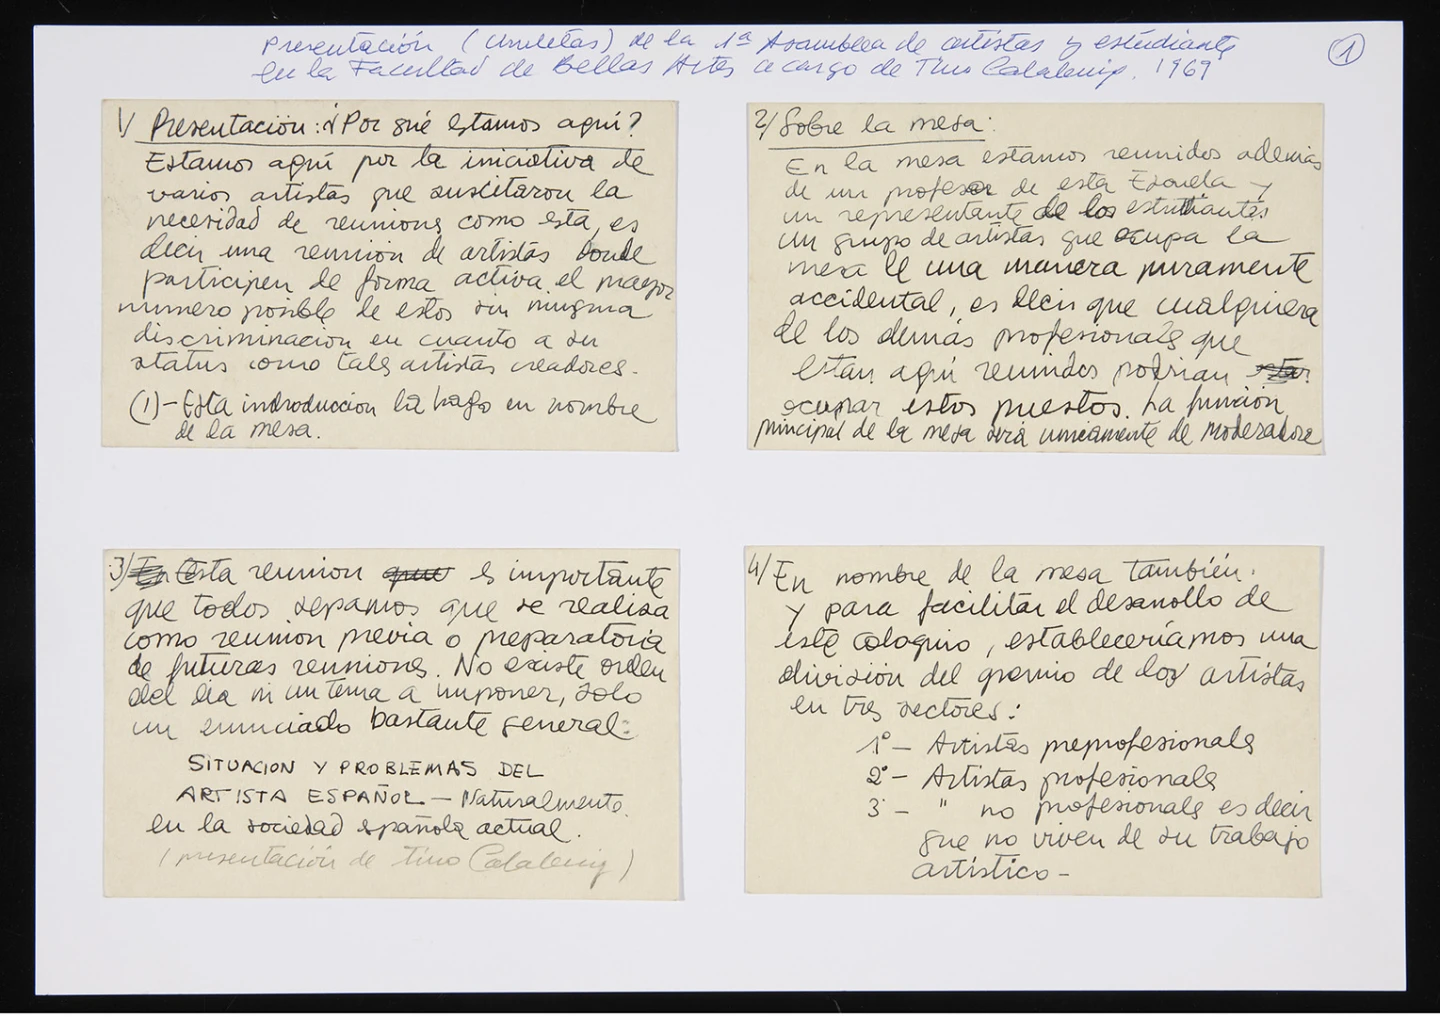 Presentación (chuletas) de la 1ª Asamblea de artistas y estudiantes
en la Facultad de Bellas Artes a cargo de Tino Calabuig. 1969
1
1/ Presentación: ¿Por qué estamos aquí?
Estamos aquí por la iniciativa de
varios artistas que suscitaron la
necesidad de reuniones como esta, es
decir una reunion de artistas donde
participen de forma activa el mayor
numero posible de estos sin ninguna
discriminacion en cuanto a su
status como tales artistas creadores.
(1)- Esta introduccion la hago en nombre
de la mesa.
2/ Sobre la mesa:
En la mesa estamos reunidos además
de un profesor de esta Escuela y
un representante de los estudiantes
un grupo de artistas que ocupa la
mesa de una manera puramente
accidental, es decir que cualquiera
de los demás profesionales que
estan aquí reunidos podrian
ocupar estos puestos. La función
principal de la mesa será unicamente de moderadores
3/ Esta reunion es importante
que todos sepamos que se realiza
como reunion previa o preparatoria
de futuras reuniones. No existe orden
del dia ni un tema a imponer, solo
un enunciado bastante general:
SITUACION Y PROBLEMAS DEL
ARTISTA ESPAÑOL — Naturalmente
en la sociedad española actual.
(presentación de Tino Calabuig)
4/ En nombre de la mesa también.
y para facilitar el desarrollo de
este coloquio, estableceríamos una
división del gremio de los artistas
en tres sectores:
1º — Artistas preprofesionales
2º — Artistas profesionales
3º — " no profesionales es decir
que no viven de su trabajo
artístico —